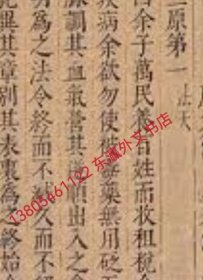 二原第一 法天
曰余子萬民養百姓而收租稅
疾病余欲勿使被毒藥無用砭
脈調其血氣營其逆順出入之會
明為之法令終而不滅久而不
異其章別其表裏為之終始
13805661122 东瀛外文书店